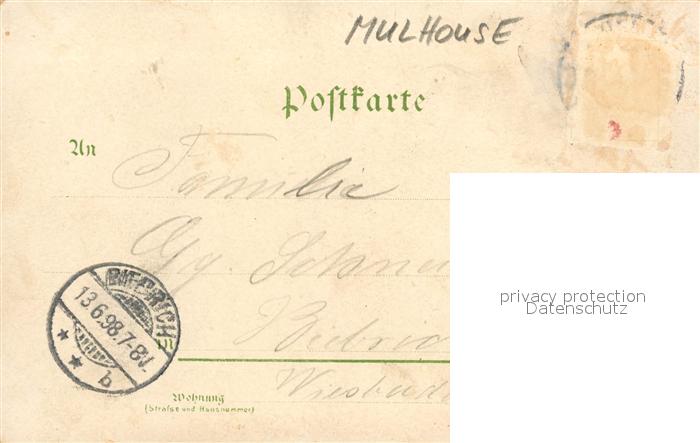 MULHOUSE
Postkarte
3
An
Familie
Gg. Schnei
Biebric
in
Wiesbad
BIEBRICH
13.6.98.7-8V.
* *
b
Wohnung
(Strafse und Hausnummer)
privacy protection
Datenschutz